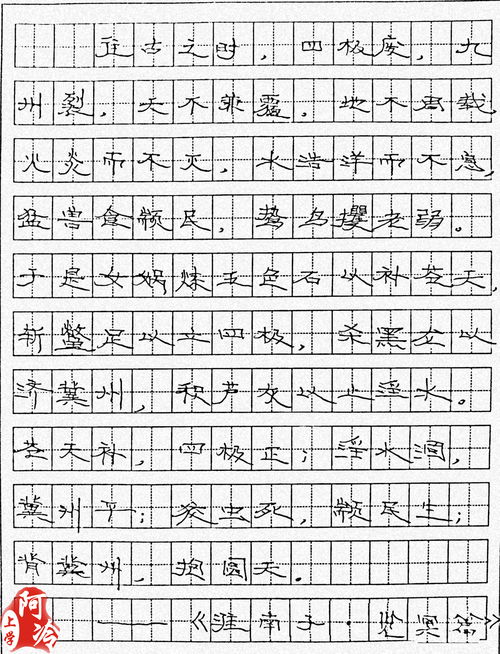 往古之时，四极废，九
州裂，天不兼覆，地不周载，
火炎而不灭，水浩洋而不息，
猛兽食颛民，鸷鸟攫老弱。
于是女娲炼五色石以补苍天，
断鳖足以立四极，杀黑龙以
济冀州，积芦灰以止淫水。
苍天补，四极正；淫水涸，
冀州平；狡虫死，颛民生；
背冀州，抱圆天。
——《淮南子·览冥篇》
阿
上学